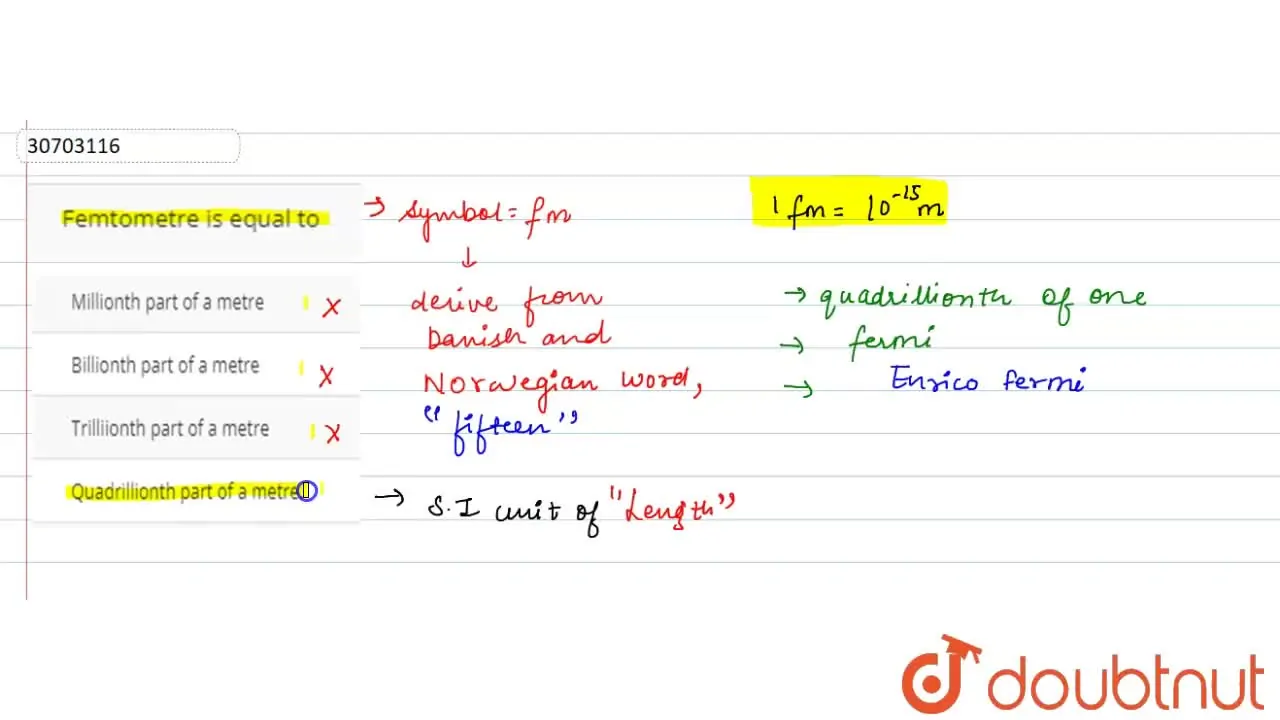 30703116
Femtometre is equal to
→ symbol = fm
1 fm = 10⁻¹⁵ m
↓
Millionth part of a metre X
derive from
Danish and
→ quadrillionth of one
→ fermi
Billionth part of a metre X
Norwegian word,
→ Enrico fermi
Trilliionth part of a metre X
"fifteen"
Quadrillionth part of a metre
→ S.I unit of "Length"
doubtnut